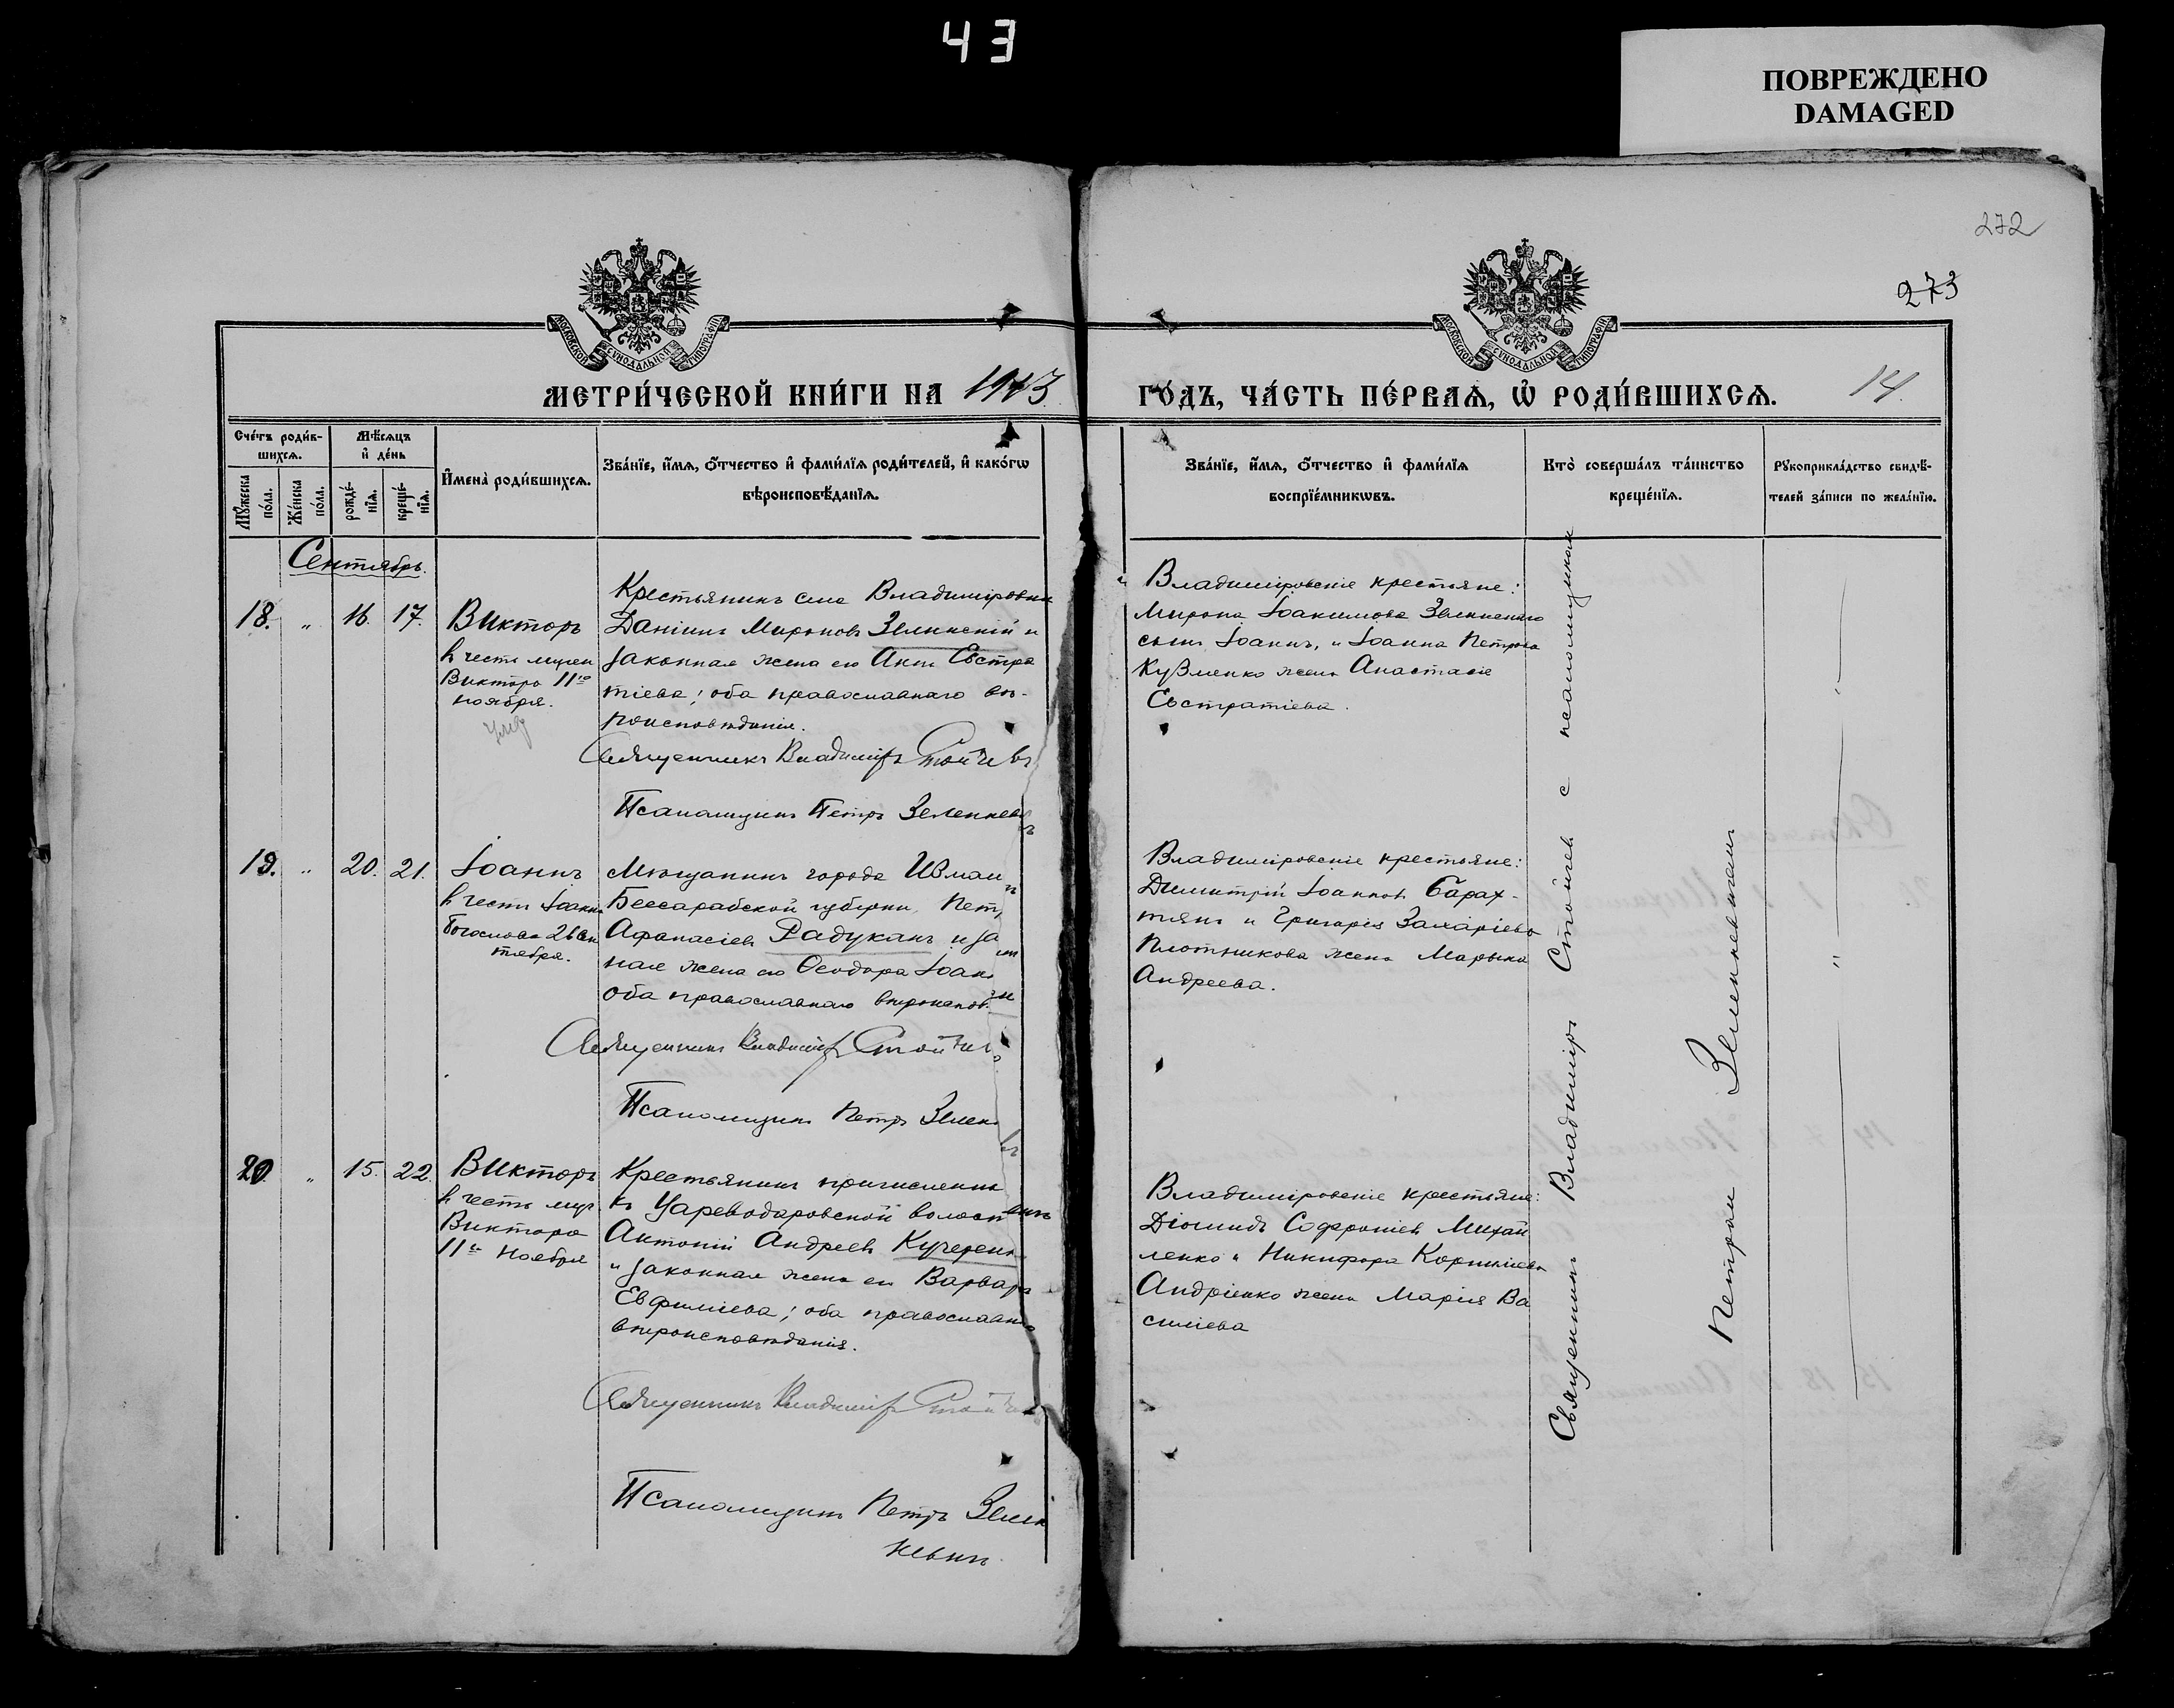 43
ПОВРЕЖДЕНО
DAMAGED
272
273
МОСКОВСКОЙ СУНОДАЛЬНОЙ ТИПОГРАФІИ
МОСКОВСКОЙ СУНОДАЛЬНОЙ ТИПОГРАФІИ
МЕТРИ́ЧЕСКОЙ КНИ́ГИ НА 1913
ГО́ДЪ, ЧА́СТЬ ПЕ́РВАѦ, Ѡ҆ РОДИ́ВШИХСѦ. 14.
Сче́тъ роди́в-
шихсѧ.
Мꙋ́жеска по́ла.
Же́нска по́ла.
Мѣ́сѧцъ
и҆ де́нь
рожде́-
нїѧ.
креще́-
нїѧ.
И҆мена̀ роди́вшихсѧ.
Зва́нїе, и҆́мѧ, ѻ҆́тчество и҆ фами́лїѧ роди́телей, и҆ како́гѡ
вѣроисповѣ́данїѧ.
Зва́нїе, и҆́мѧ, ѻ҆́тчество и҆ фами́лїѧ
воспрїе́мникѡвъ.
Кто̀ соверша́лъ та́инство
креще́нїѧ.
Рꙋкоприкла́дство свидѣ́-
телей за́писи по жела́нїю.
Сентябрь.
18. „ 16. 17. Викторъ
въ честь мучен
Виктора 11го
ноября.
Крестьянинъ села Владиміровки
Даніилъ Мироновъ Зелинскій и
законная жена его Анна Евстра
тіева; оба православнаго вѣ-
роисповѣданія.
Священникъ Владиміръ Стойчевъ
Псаломщикъ Петръ Зеленкевичъ
Владиміровскіе крестьяне:
Мирона Іоакимова Зелинскаго
сынъ Іоаннъ, и Іоанна Петрова
Кузменко жена Анастасія
Евстратіева.
19. „ 20. 21. Іоаннъ
въ честь Іоанна
Богослова 26 Сен
тября.
Мѣщанинъ города Измаи
Бессарабской губерніи, Петръ
Афанасіевъ Радуканъ и за
ная жена его Ѳеодора Іоан
оба православнаго вѣроисповѣ
Священникъ Владиміръ Стойчевъ
Псаломщикъ Петръ Зеленк
Владиміровскіе крестьяне:
Димитрій Іоанновъ Барах-
тянъ и Григорія Захаріева
Плотникова жена Марьяна
Андреева.
20. „ 15. 22. Викторъ
въ честь муч
Виктора
11го Ноября
Крестьянинъ причисленный
къ Цареводаровской волости
Антоній Андреевъ Кучеренко
и законная жена его Варвара
Евфиміева; оба православнаго
вѣроисповѣданія.
Священникъ Владиміръ Стойчевъ
Псаломщикъ Петръ Зелен
кевичъ.
Владиміровскіе крестьяне:
Діомидъ Софроніевъ Михай
ленко и Никифора Корниліева
Андріенко жена Марія Ва
силіева
Священникъ Владиміръ Стойчевъ с псаломщикомъ
Петромъ Зеленкевичемъ